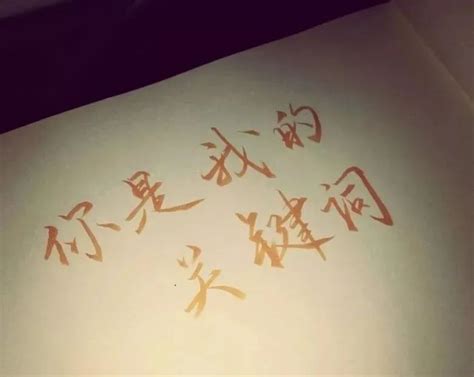 你是我的
关键词